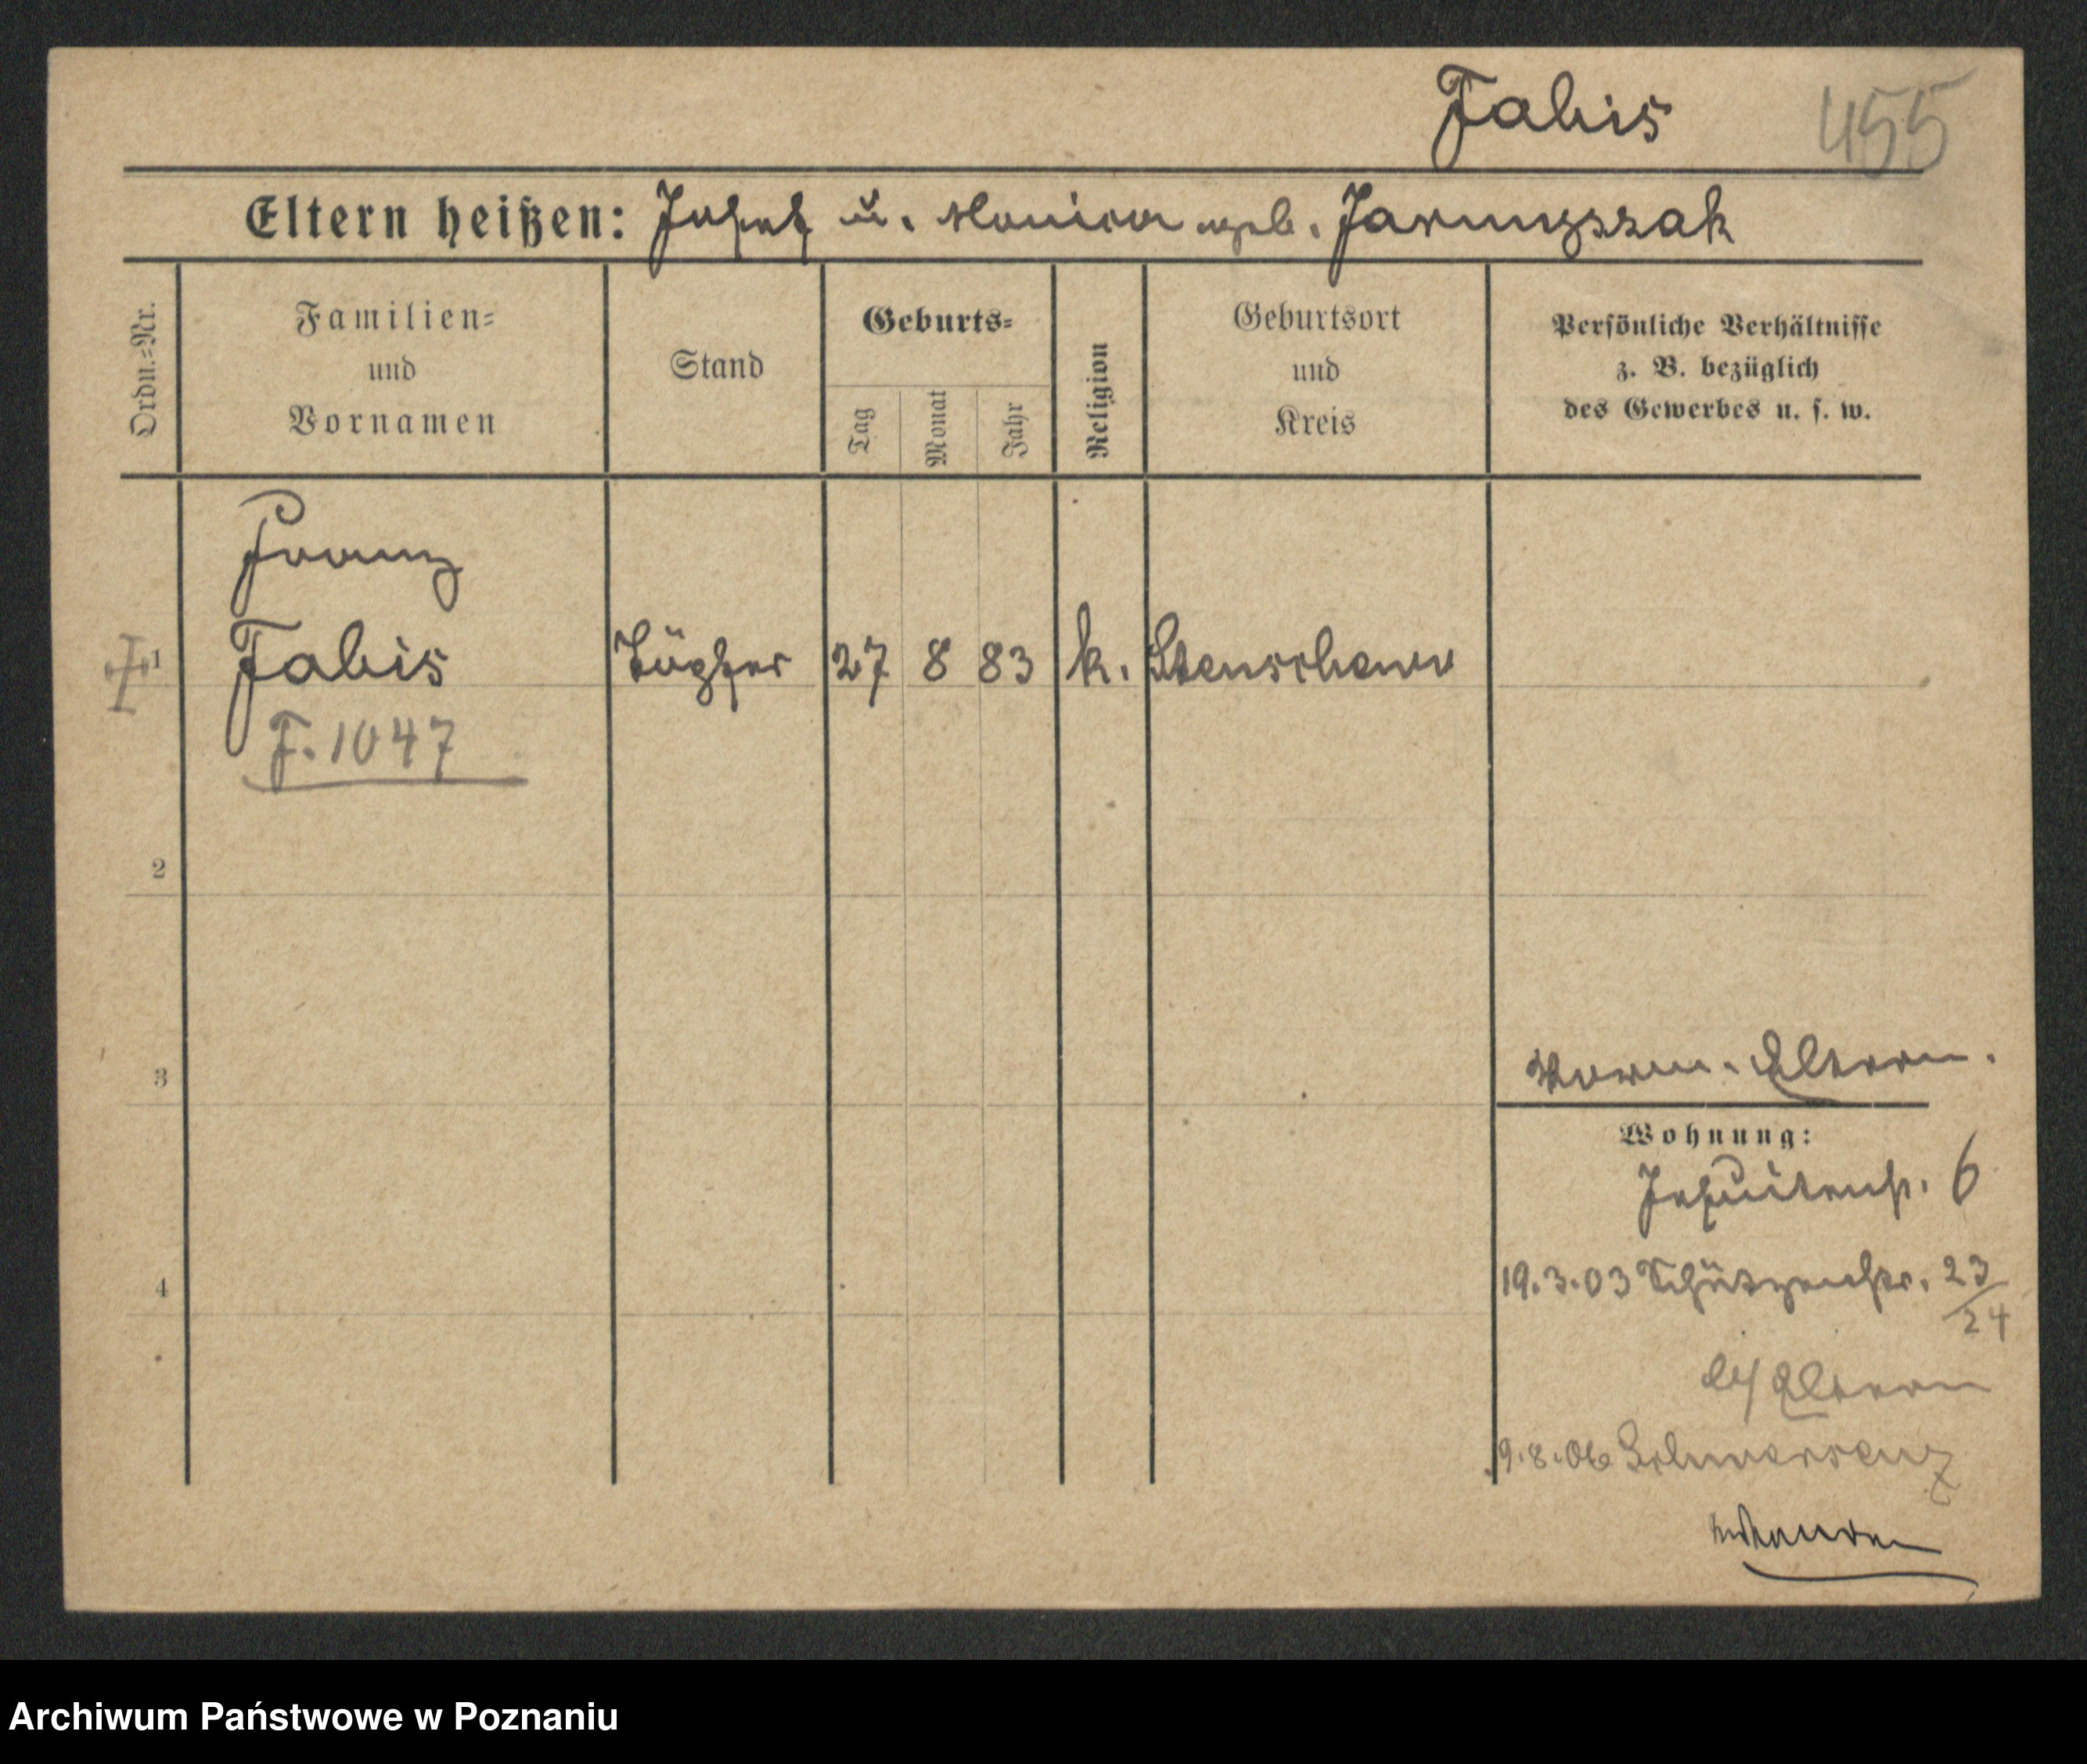 Fabis 455
Eltern heißen: Josef u. Monica geb.
Ordn.=Nr.
Familien=
und
Vornamen
Stand
Geburts=
Tag
Monat
Jahr
Religion
Geburtsort
und
Kreis
Persönliche Verhältnisse
z. B. bezüglich
des Gewerbes u. s. w.
Franz
1 Fabis 27 8 83 k. Stenschewo
F. 1047
2
3
Eltern.
Wohnung:
Jesuitenstr. 6
4
19.3.03 Schützenstr. 23/24
b/ Eltern
9.8.06 Schwersenz
Archiwum Państwowe w Poznaniu